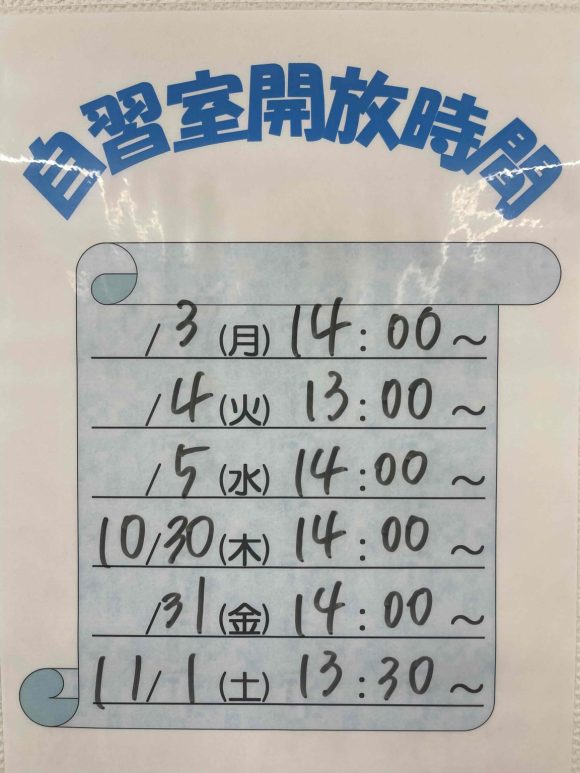 自習室開放時間
/3(月) 14:00～
/4(火) 13:00～
/5(水) 14:00～
10/30(木) 14:00～
/31(金) 14:00～
11/1(土) 13:30～